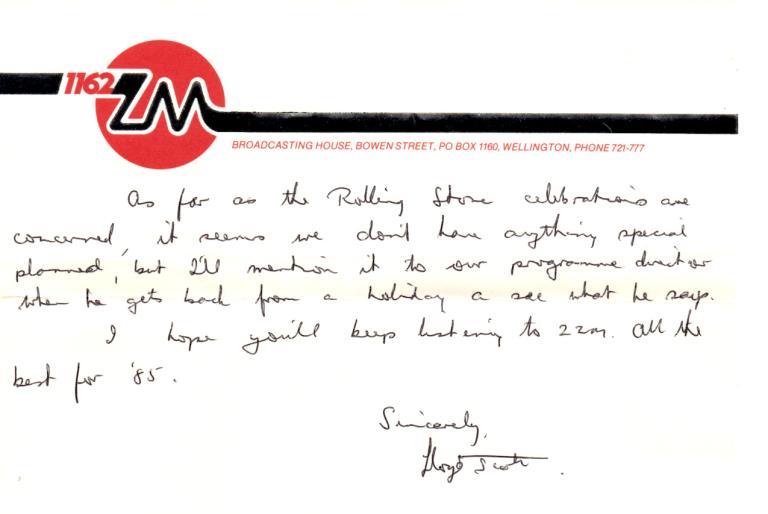 1162 ZM
BROADCASTING HOUSE, BOWEN STREET, PO BOX 1160, WELLINGTON, PHONE 721-777
As far as the Rolling Stone celebrations are
concerned, it seems we don't have anything special
planned, but I'll mention it to our programme director
when he gets back from a holiday a see what he says.
I hope you'll keep listening to 2ZM. All the
best for '85.
Sincerely,
Lloyd Scott.